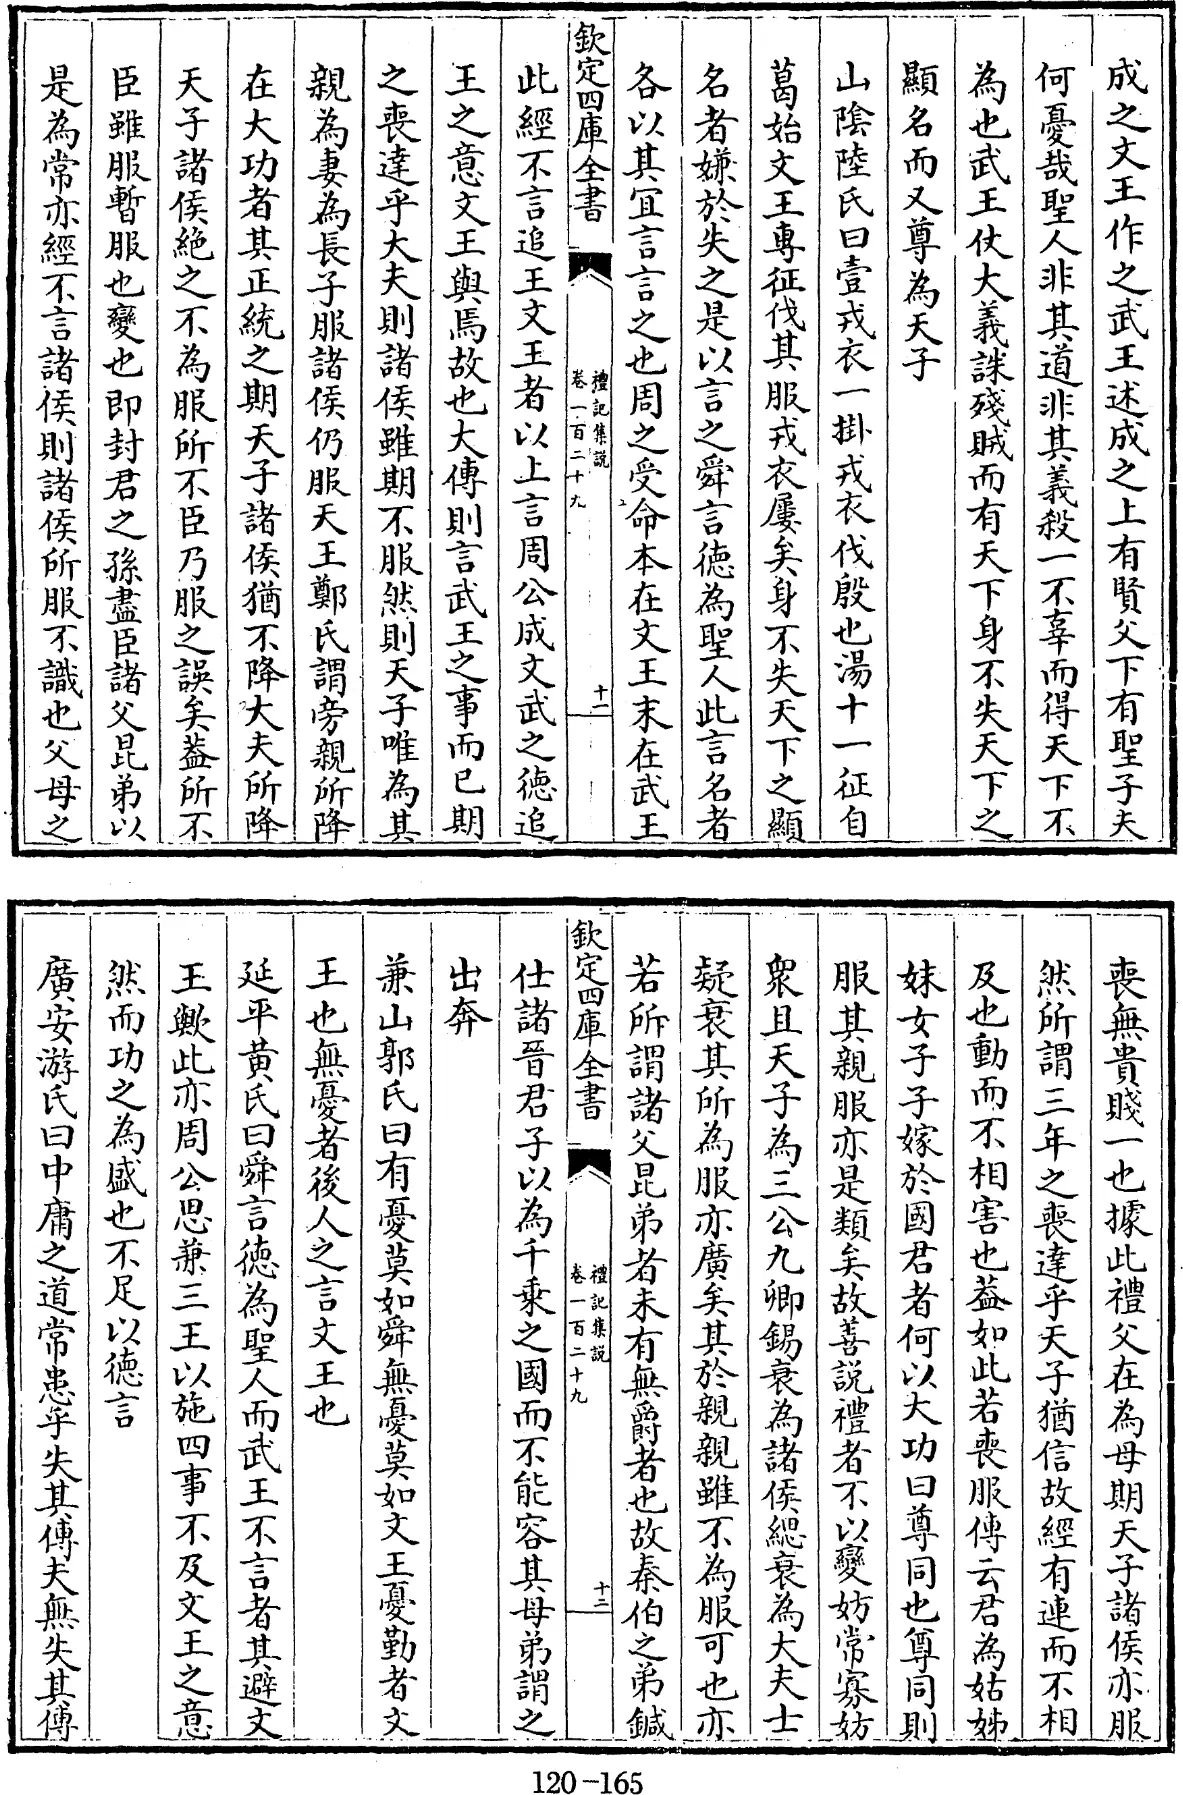 成之文王作之武王述成之上有賢父下有聖子夫
何憂哉聖人非其道非其義殺一不辜而得天下不
為也武王仗大義誅殘賊而有天下身不失天下之
顯名而又尊為天子
山陰陸氏曰壹戎衣一掛戎衣伐殷也湯十一征自
葛始文王專征伐其服戎衣屢矣身不失天下之顯
名者嫌於失之是以言之舜言徳為聖人此言名者
各以其宜言言之也周之受命本在文王末在武王
欽定四庫全書
禮記集說
卷一百二十九
十一
此經不言追王文王者以上言周公成文武之徳追
王之意文王與焉故也大傳則言武王之事而已期
之喪達乎大夫則諸侯雖期不服然則天子唯為其
親為妻為長子服諸侯仍服天王鄭氏謂旁親所降
在大功者其正統之期天子諸侯猶不降大夫所降
天子諸侯絶之不為服所不臣乃服之誤矣葢所不
臣雖服暫服也變也即封君之孫盡臣諸父昆弟以
是為常亦經不言諸侯則諸侯所服不識也父母之
喪無貴賤一也據此禮父在為母期天子諸侯亦服
然所謂三年之喪達乎天子猶信故經有連而不相
及也動而不相害也葢如此若喪服傳云君為姑姊
妹女子子嫁於國君者何以大功曰尊同也尊同則
服其親服亦是類矣故善說禮者不以變妨常寡妨
衆且天子為三公九卿錫衰為諸侯緦衰為大夫士
疑衰其所為服亦廣矣其於親親雖不為服可也亦
若所謂諸父昆弟者未有無爵者也故秦伯之弟鍼
欽定四庫全書
禮記集說
卷一百二十九
十二
仕諸晉君子以為千乗之國而不能容其母弟謂之
出奔
兼山郭氏曰有憂莫如舜無憂莫如文王憂勤者文
王也無憂者後人之言文王也
延平黄氏曰舜言徳為聖人而武王不言者其避文
王歟此亦周公思兼三王以施四事不及文王之意
然而功之為盛也不足以徳言
廣安游氏曰中庸之道常患乎失其傳夫無失其傳
120-165